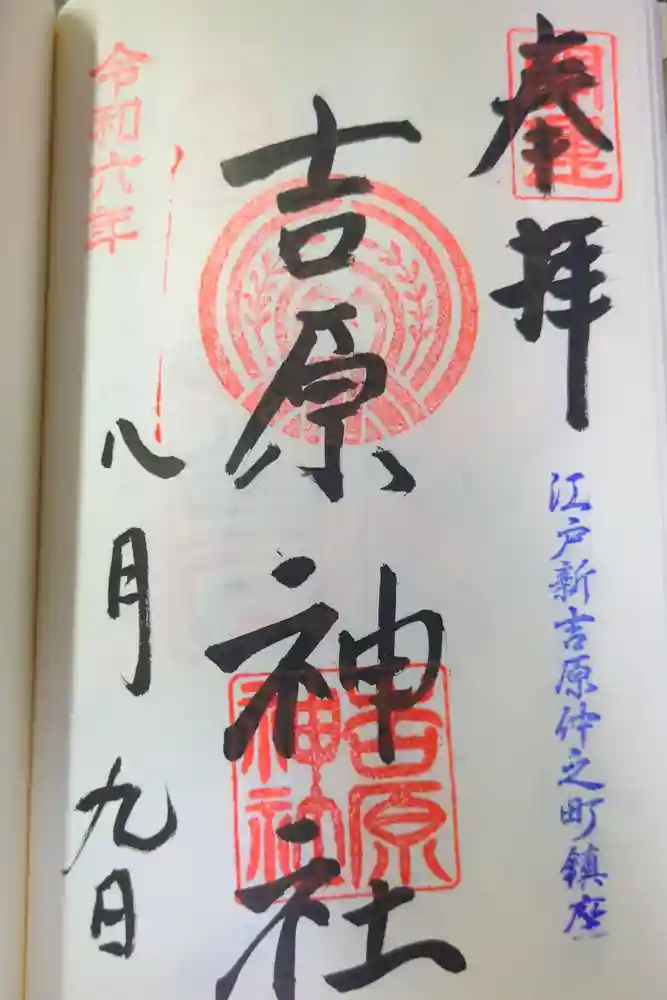 奉拝
開運
江戸新吉原仲之町鎮座
吉原神社
吉原
神社
令和六年
八月九日